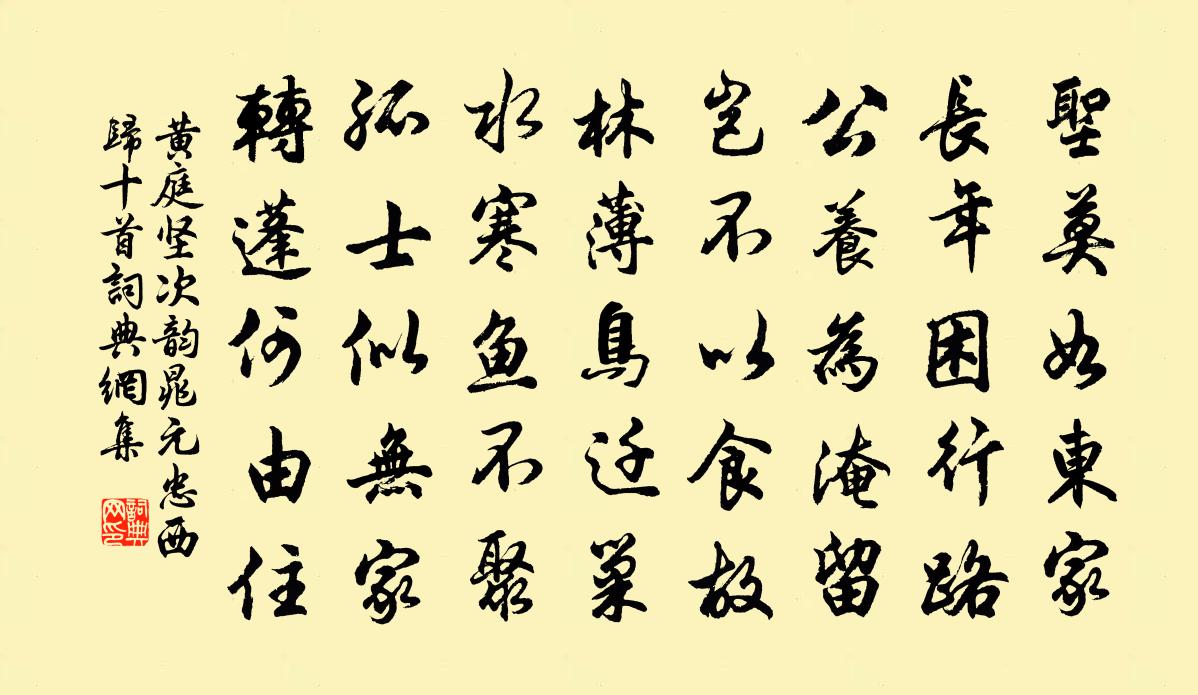 聖莫如東家
長年困行路
公養為淹留
豈不以食故
林薄鳥迁巢
水寒鱼不聚
孤士似無家
轉蓬何由住
黄庭坚次韵晁元忠西
歸十首詞典網集
詞典
网印